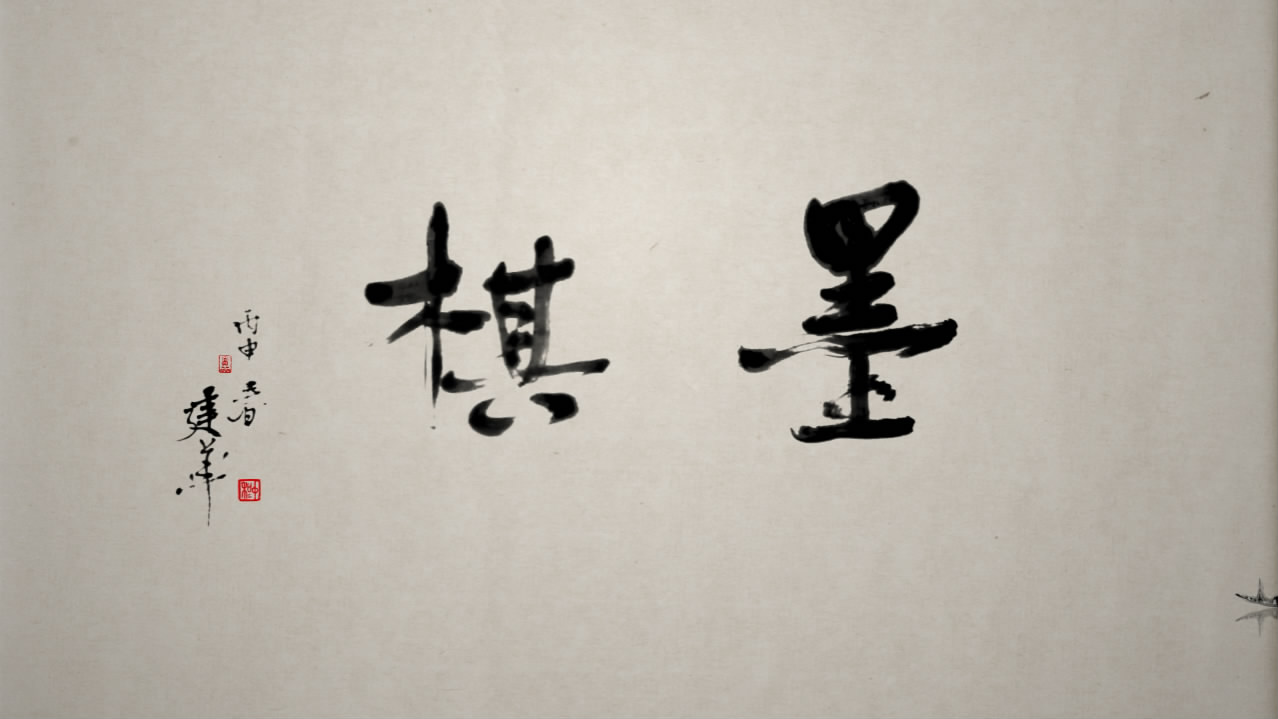 墨棋
丙申春
建華